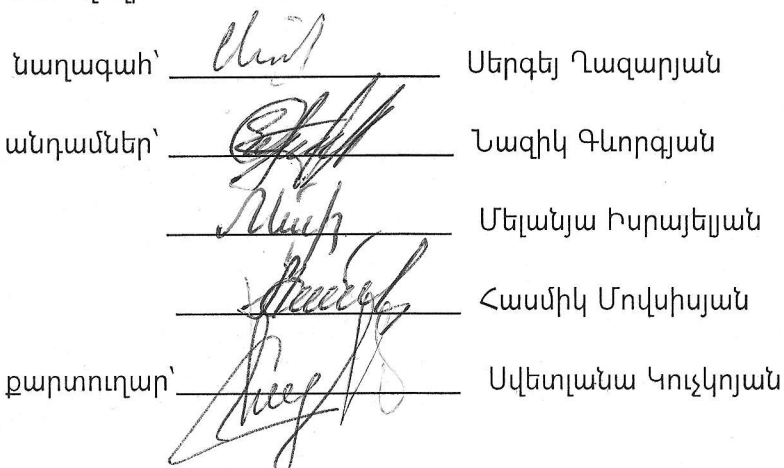 նաղագահ՝ Սերգեյ Ղազարյան
անդամներ՝ Նազիկ Գևորգյան
Մելանյա Իսրայելյան
Հասմիկ Մովսիսյան
քարտուղար՝ Սվետլանա Կուչկոյան